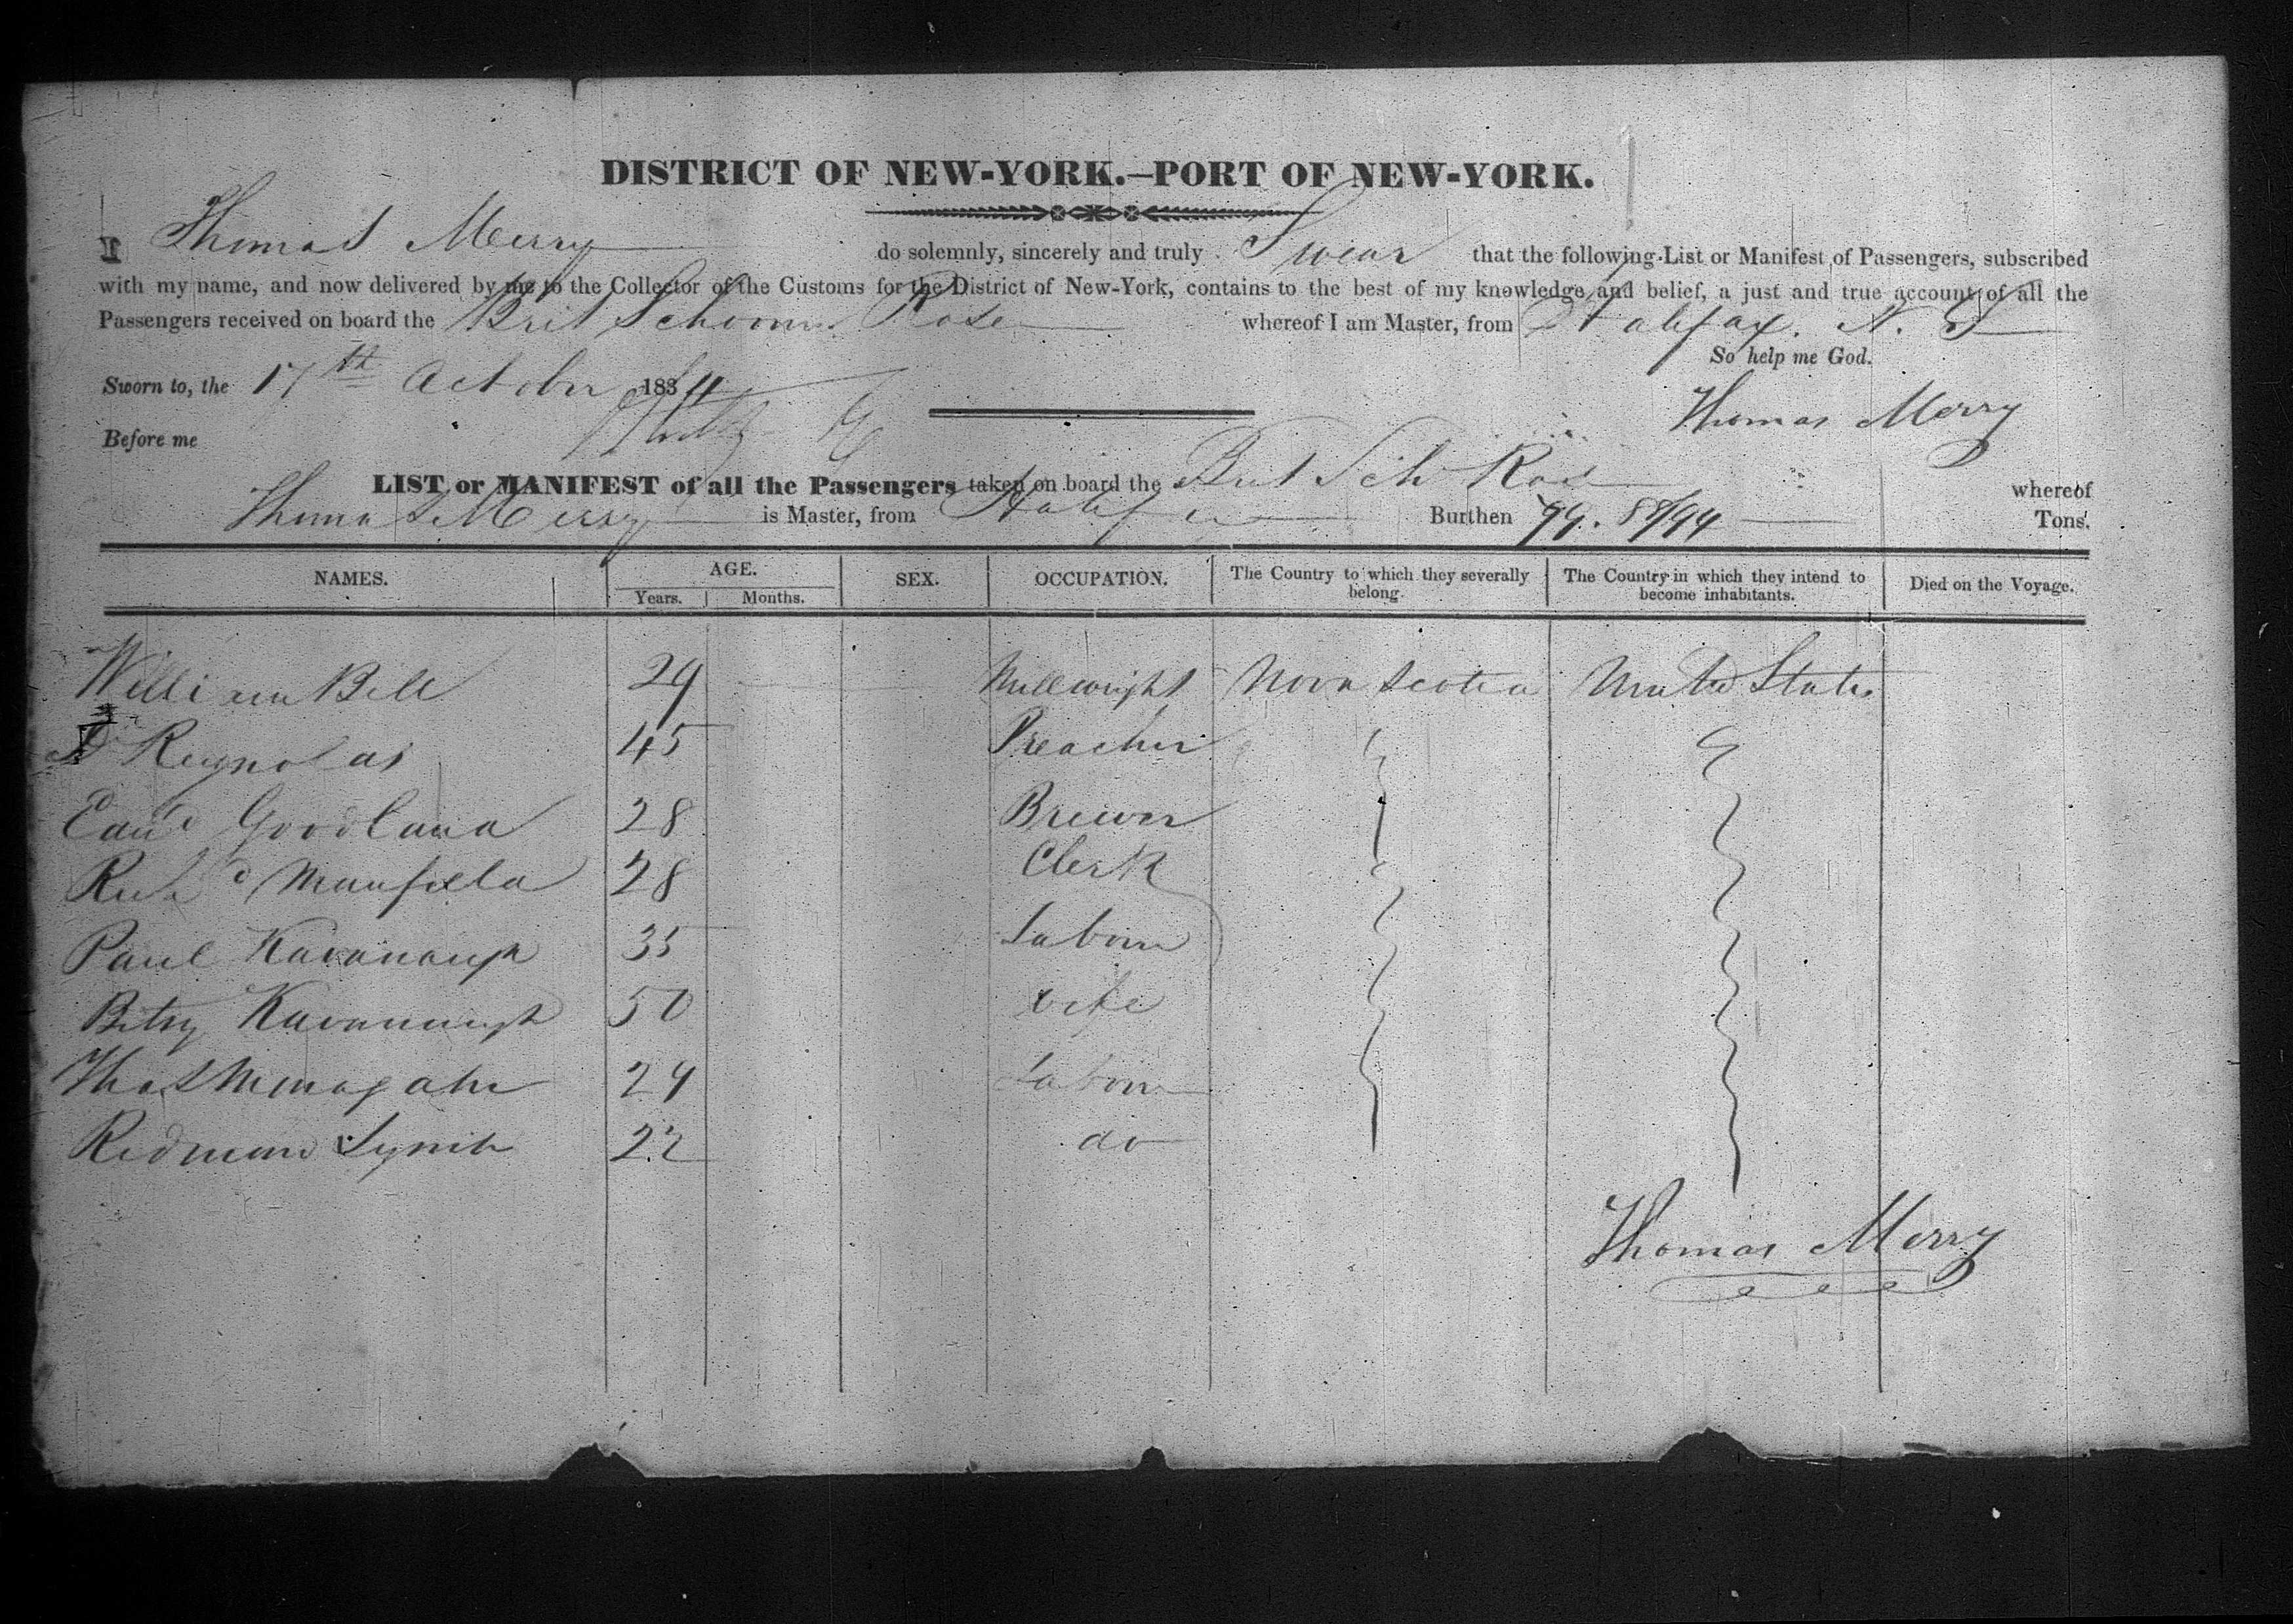 DISTRICT OF NEW-YORK.—PORT OF NEW-YORK.
I Thomas Merry do solemnly, sincerely and truly Swear that the following List or Manifest of Passengers, subscribed
with my name, and now delivered by me to the Collector of the Customs for the District of New-York, contains to the best of my knowledge and belief, a just and true account of all the
Passengers received on board the Brit Schooner Rose whereof I am Master, from Halifax. N. S
So help me God.
Sworn to, the 17th October 1834
Thomas Merry
Before me
LIST or MANIFEST of all the Passengers taken on board the Brit Sch Rose whereof
Thomas Merry is Master, from Halifax Burthen Tons.
NAMES. AGE. SEX. OCCUPATION. The Country to which they severally belong. The Country in which they intend to become inhabitants. Died on the Voyage.
Years. Months.
William Bell 29 Millwright Nova Scotia United States
Reynolds 45 Preacher
Edwd Goodland 28 Brewer
Richd Manfield 28 Clerk
Paul Kavanaugh 35 Labour
Betsy Kavanaugh 50 wife
Thos 24 Labour
Redmund Lynch 22 do
Thomas Merry